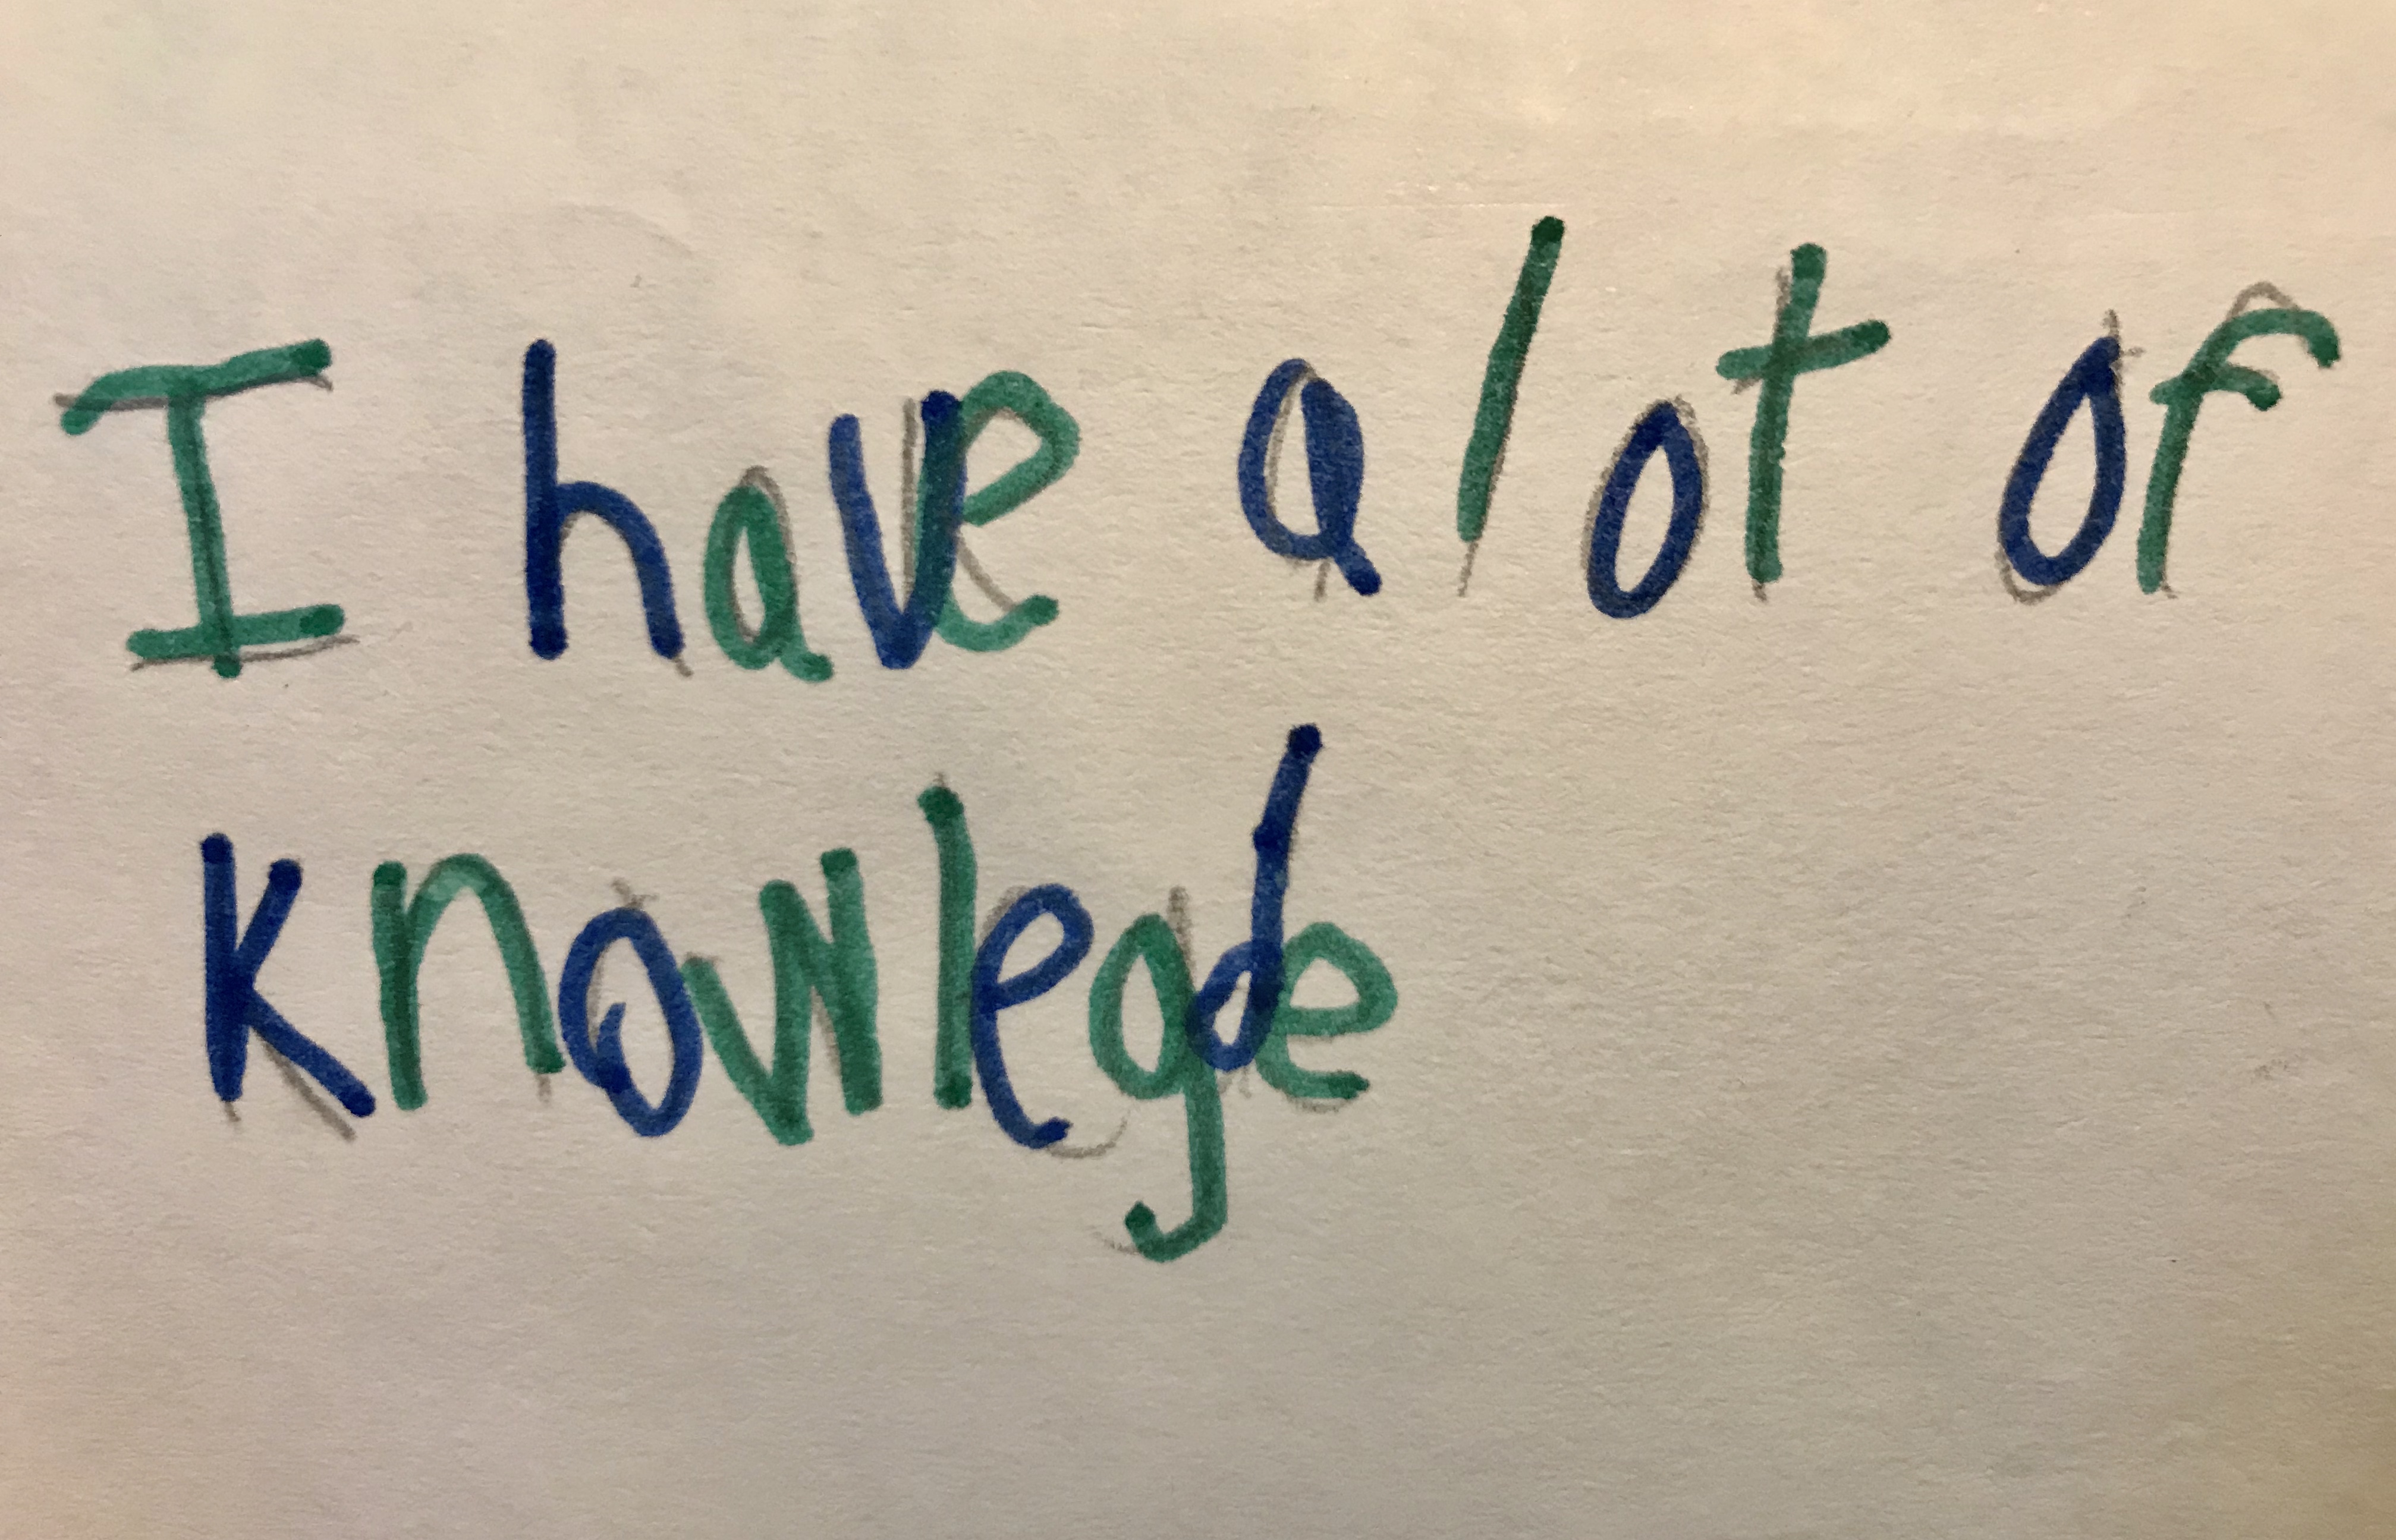 I have a lot of
knowlegde